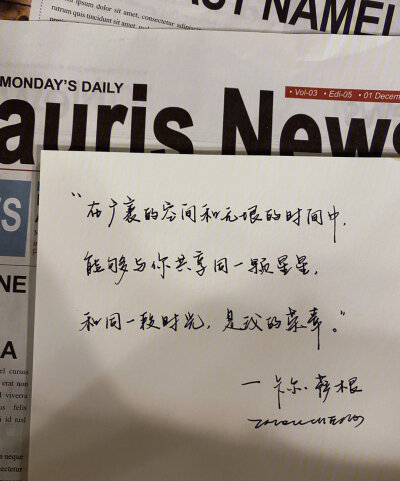 psum dolor sit amet, consectetur adipiscin
MONDAY'S DAILY
• Vol-03 • Edi-05 • 01 Decem
auris News
“在广袤的空间和无垠的时间中，
能够与你共享同一颗星星，
和同一段时光，是我的荣幸。”
一卡尔·萨根
S
NE
A
cursus
erat non
viverra
felis
id nisl
neque